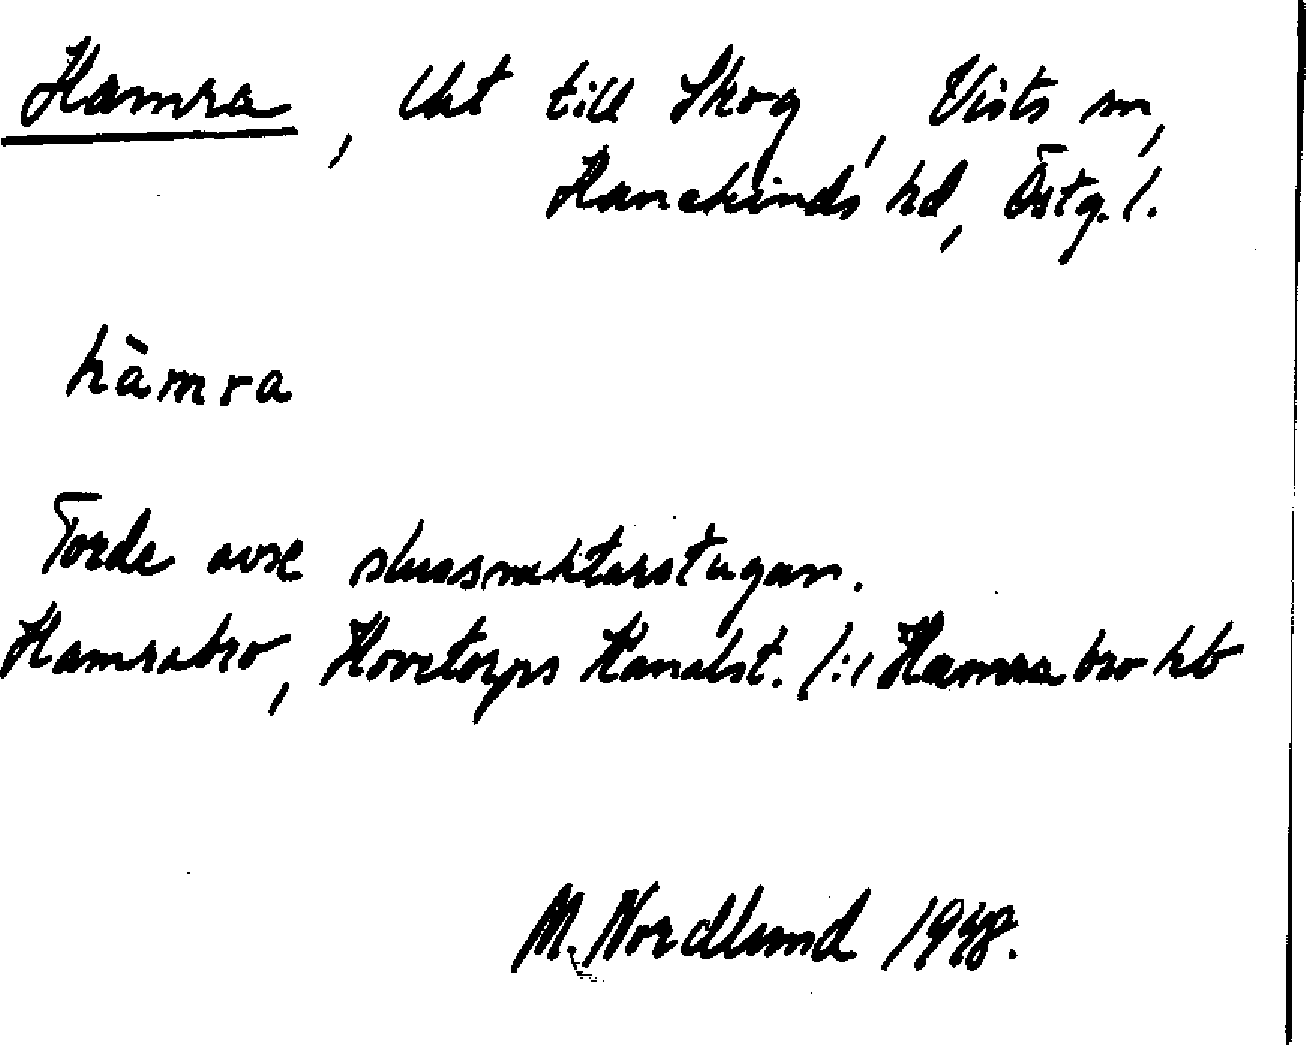 Hamra, lht till Skog, Vists sn,
Hanekinds hd, Östg. l.
hàmra
Torde avse slussvaktarstugan.
Hamrabro, Hovetorps Kanalst. l:1 Hamra bro hb
M. Nordlund 1948.